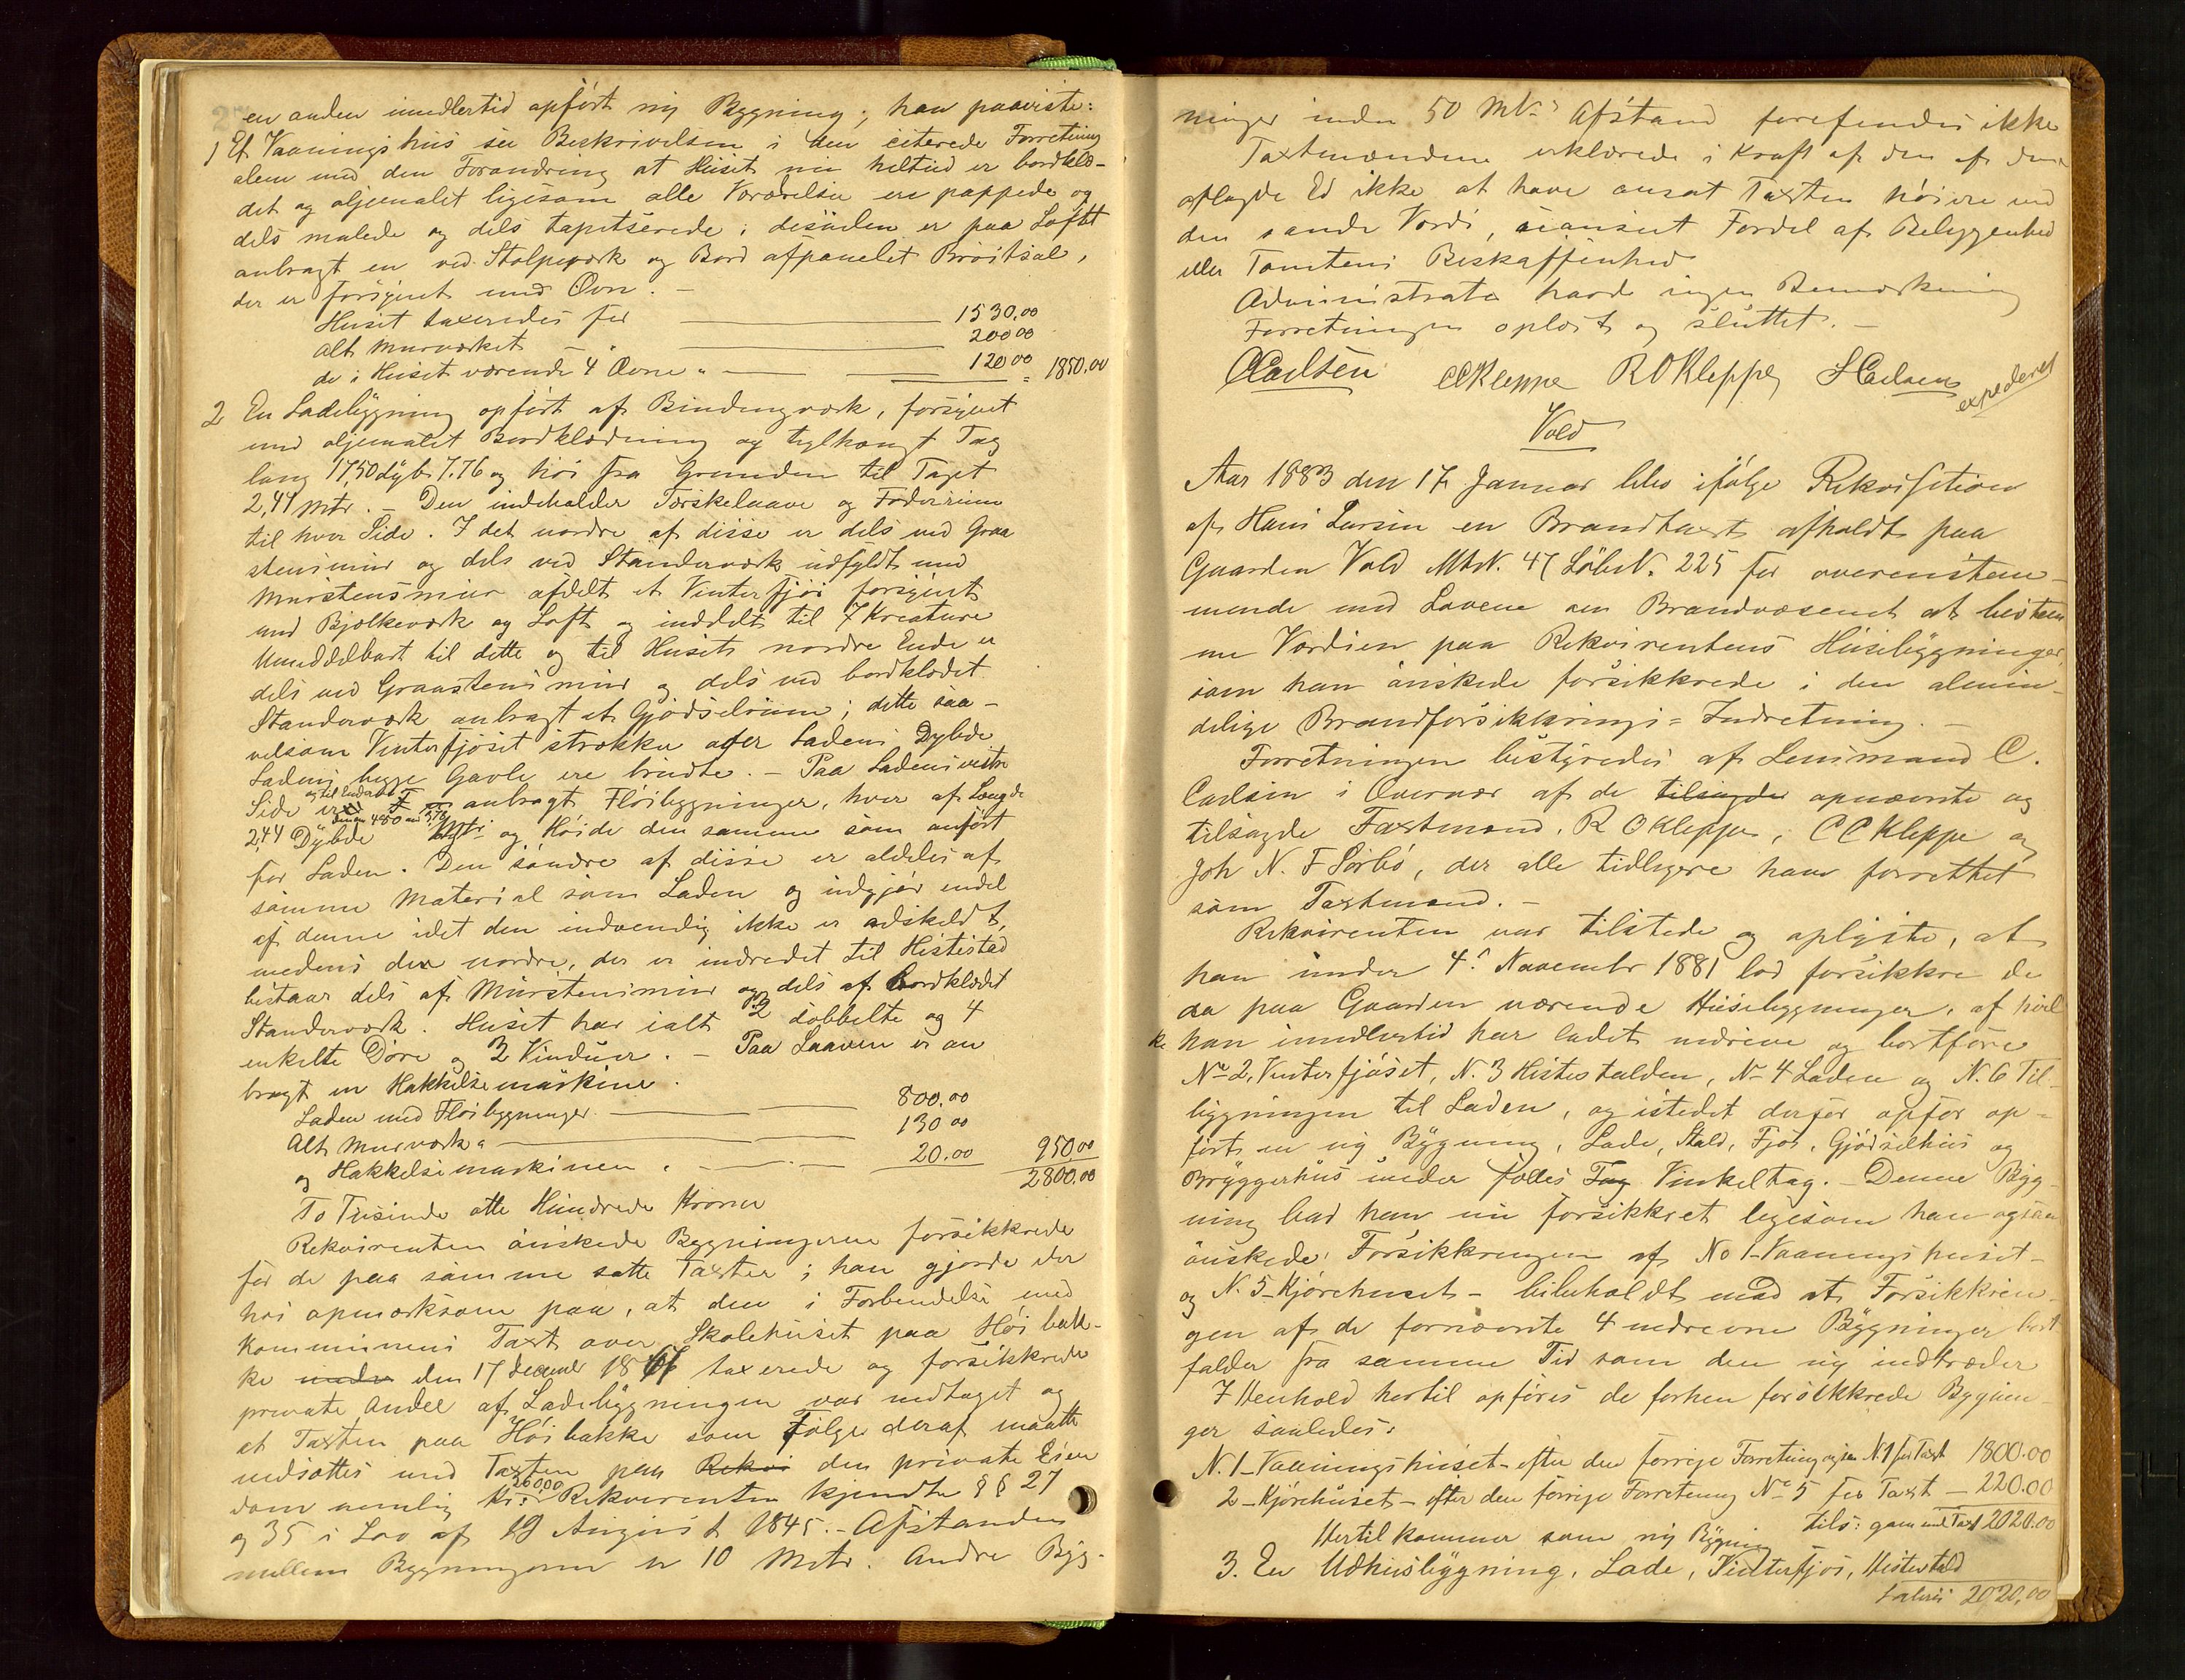 en anden imedlertid opført ny Bygning; han paaviste:
1 Et Vaaningshus se Beskrivelsen i den citerede Forretning
alene med den Forandring at Huset nu heltud er bordklæ-
det og oljemalet ligesom alle Værelser ere pappede og
dels malede og dels tapetserede; desuden er paa Loftet
anbragt en ved Stolpeværk og Bord afpanelet
der er forsynet med Ovn. -
Huset taxeredes for 1530.00
alt Murværket " 200 00
de i Huset værende 4 Ovne " 120 00 = 1850.00
2 En Ladebygning opført af Bindingværk, forsynet
med oljemalet Bordklædning og teglhængt Tag
lang 17,50 dyb 7.76 og høi fra Grunden til Taget
2,44 Mtr. - Den indeholder Tærskelaave og Foderrum
til hver Side. I det nordre af disse er dels ved Graa
stensmur og dels ved Standerværk udfyldt med
Murstensmur afdelt et Vinterfjøs forsynet
med Bjelkeværk og Loft og inddelt til 7 Kreature
Umiddelbart til dette og til Husets nordre Ende er
dels ved Graastensmur og dels ved bordklædet
Standerværk anbragt et Gjødselrum; dette saa-
velsom Vinterfjøset strækker over Ladens Dybde
Ladens begge Gavle ere brudte. - Paa Ladens vestre
Side er anbragt Fløibygninger, hver af Længde
2,44 Dybde og Høide den samme som anført
for Laden. Den søndre af disse er aldeles af
samme Material som Laden og udgjør endel
af denne idet den indvendig ikke er adskildt,
medens den nordre, der er indredet til Hestestald
bestaar dels af Murstensmur og dels af bordklædet
Standerværk. Huset har ialt 2 dobbelte og 4
enkelte Døre og 3 Vinduer. - Paa Laaven er an
bragt en Hakkelsemaskine.
Laden med Fløibygninger 800.00
Alt Murværk " 130 00
og Hakkelsemaskinen " 20.00 950 00
2800.00
To Tusinde otte Hundrede Kroner
Rekvirenten ønskede Bygningerne forsikkrede
for de paa samme satte Taxter; han gjorde der
hos opmærksom paa, at den i Forbindelse med
Kommunens Taxt over Skolehuset paa Høi bak-
ke under den 17 Decembr 18 taxerede og forsikkrede
private Andel af Ladebygningen var nedtaget og
at Taxten paa Høibakke som Følge deraf maatte
nedsættes med Taxten paa Rekvi den private Eien
dom nemlig Kr: 260,00 Rekvirenten kjendte § § 27
og 35 i Lov af 19 August 1845. - Afstanden
mellem Bygningerne er 10 Metr. Andre Byg-
ninger inden 50 Mtr. Afstand forefindes ikke
Taxtmændene erklærede i Kraft af den af dem
aflagde Ed ikke at have ansat Taxten høiere end
den sande Værdi, uanseet Fordel af Beliggenhed
eller Tomtens Beskaffenhed
Administrator havde ingen Bemærkning
Forretningen oplæst og sluttet. -
CCarlsen CCKleppe R O Kleppe H Carlsen
expederet
Vold
Aar 1883 den 17 Januar blev ifølge Rekvisition
af Hans Larsen en Brandtaxt afholdt paa
Gaarden Vold MtrN. 47 LøbeN. 225 for overenstem-
mende med Lovene om Brandvæsenet at bestem
me Værdien paa Rekvirentens Husebygninger
som han ønskede forsikkrede i den almin-
delige Brandforsikkrings-Indretning. -
Forretningen bestyredes af Lensmand C.
Carlsen i Overvær af de tilsagde opnævnte og
tilsagde Taxtmænd. R O Kleppe, C C Kleppe og
Joh N. F Sørbø, der alle tidligere have forrettet
som Taxtmænd. -
Rekvirenten var tilstede og oplyste, at
han under 4. November 1881 lod forsikkre de
da paa Gaarden værende Husebygninger, af hvil
ke han imedlertid har ladet nedrive og bortføre
No 2, Vinterfjøset, N. 3 Hestestalden, No 4 Laden og N. 6 Til-
bygningen til Laden, og istedet derfor opfør op-
ført en ny Bygning, Lade, Stald, Fjøs, Gjødselhus og
Bryggerhus under fælles Tag Vinkeltag. - Denne Byg-
ning bad han nu forsikkret ligesom han ogsaa
ønskede Forsikkringen af No 1 - Vaaningshuset -
og N. 5 - Kjørehuset - bibeholdt med at Forsikkrin-
gen af de fornævnte 4 nedrevne Bygninger bort
falder fra samme Tid som den ny indtræder
I Henhold hertil opføres de forhen forsikkrede Bygnin-
ger saaledes:
N. 1 - Vaaningshuset - efter den forrige Forretning ogsaa N. 1 for Taxt 1800.00
2 - Kjørehuset - efter den forrige Forretning No 5 for Taxt - 220.00
tils: gammel Taxt 2020.00
Hertil kommer som ny Bygning
3. En Udhusbygning, Lade, Vinterfjøs, Hestestald
2020,00